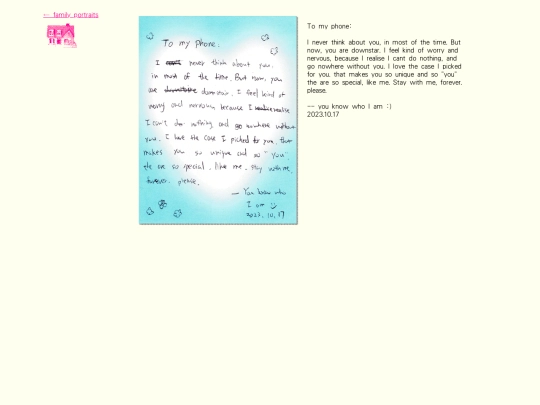 ← family portraits
To my phone:
I never think about you,
in most of the time. But now, you
are downstair. I feel kind of
worry and nervous because I realise
I can't do nothing and go nowhere without
you. I love the case I picked for you. that
makes you so unique and so "you".
the are so special, like me. Stay with me,
forever, please.
— You know who
I am :)
2023.10.17
To my phone:
I never think about you, in most of the time. But
now, you are downstar. I feel kind of worry and
nervous, because I realise I cant do nothing, and
go nowhere without you. I love the case I picked
for you, that makes you so unique and so "you"
the are so special, like me. Stay with me, forever,
please.
-- you know who I am :)
2023.10.17